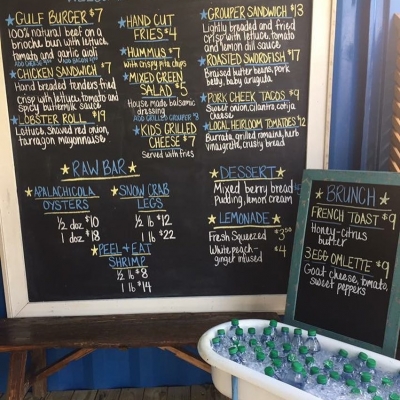 GULF BURGER $7
100% natural beef on a
brioche bun with lettuce,
tomato and garlic aioli
CHICKEN SANDWICH $7
Hand breaded tenders fried
crisp with lettuce, tomato and
spicy buttermilk sauce
LOBSTER ROLL $19
Lettuce, shaved red onion,
tarragon mayonnaise
HAND CUT
FRIES $4
HUMMUS $7
with crispy pita chips
MIXED GREEN
SALAD $5
House made balsamic
dressing
ADD GRILLED GROUPER $8
KIDS GRILLED
CHEESE $7
Served with fries
GROUPER SANDWICH $13
Lightly breaded and fried
crisp with lettuce, tomato
and lemon dill sauce
ROASTED SWORDFISH $17
Braised butter beans, pork
belly, baby arugula
PORK CHEEK TACOS $9
Sweet onion, cilantro, cotija
Cheese
LOCAL HEIRLOOM TOMATOES $12
Burrata, grilled romaine, herb
vinaigrette, crusty bread
RAW BAR
APALACHICOLA
OYSTERS
1/2 doz $10
1 doz $18
SNOW CRAB
LEGS
1/2 lb $12
1 lb $22
PEEL + EAT
SHRIMP
1/2 lb $8
1 lb $14
DESSERT
Mixed berry bread
Pudding, lemon cream
LEMONADE
Fresh Squeezed $3.50
White peach-
ginger infused $4
BRUNCH
FRENCH TOAST $9
Honey-citrus
butter
3 EGG OMLETTE $9
Goat cheese, tomato,
sweet peppers